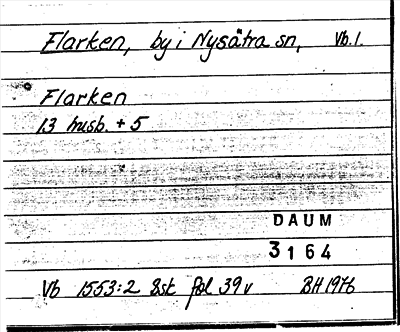 Flarken, by i Nysätra sn, Vb.l.
Flarken
13 husb. + 5
DAUM
3164
Vb 1553:2 Bsk fol 39v BH 1976